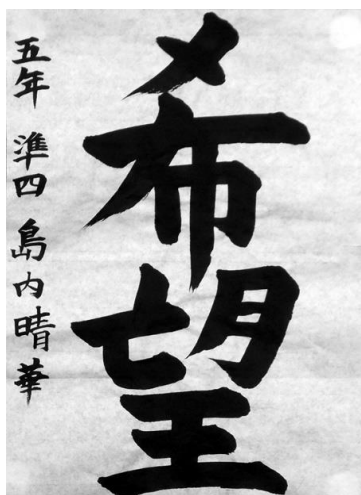 希望
五年 準四 島内晴華